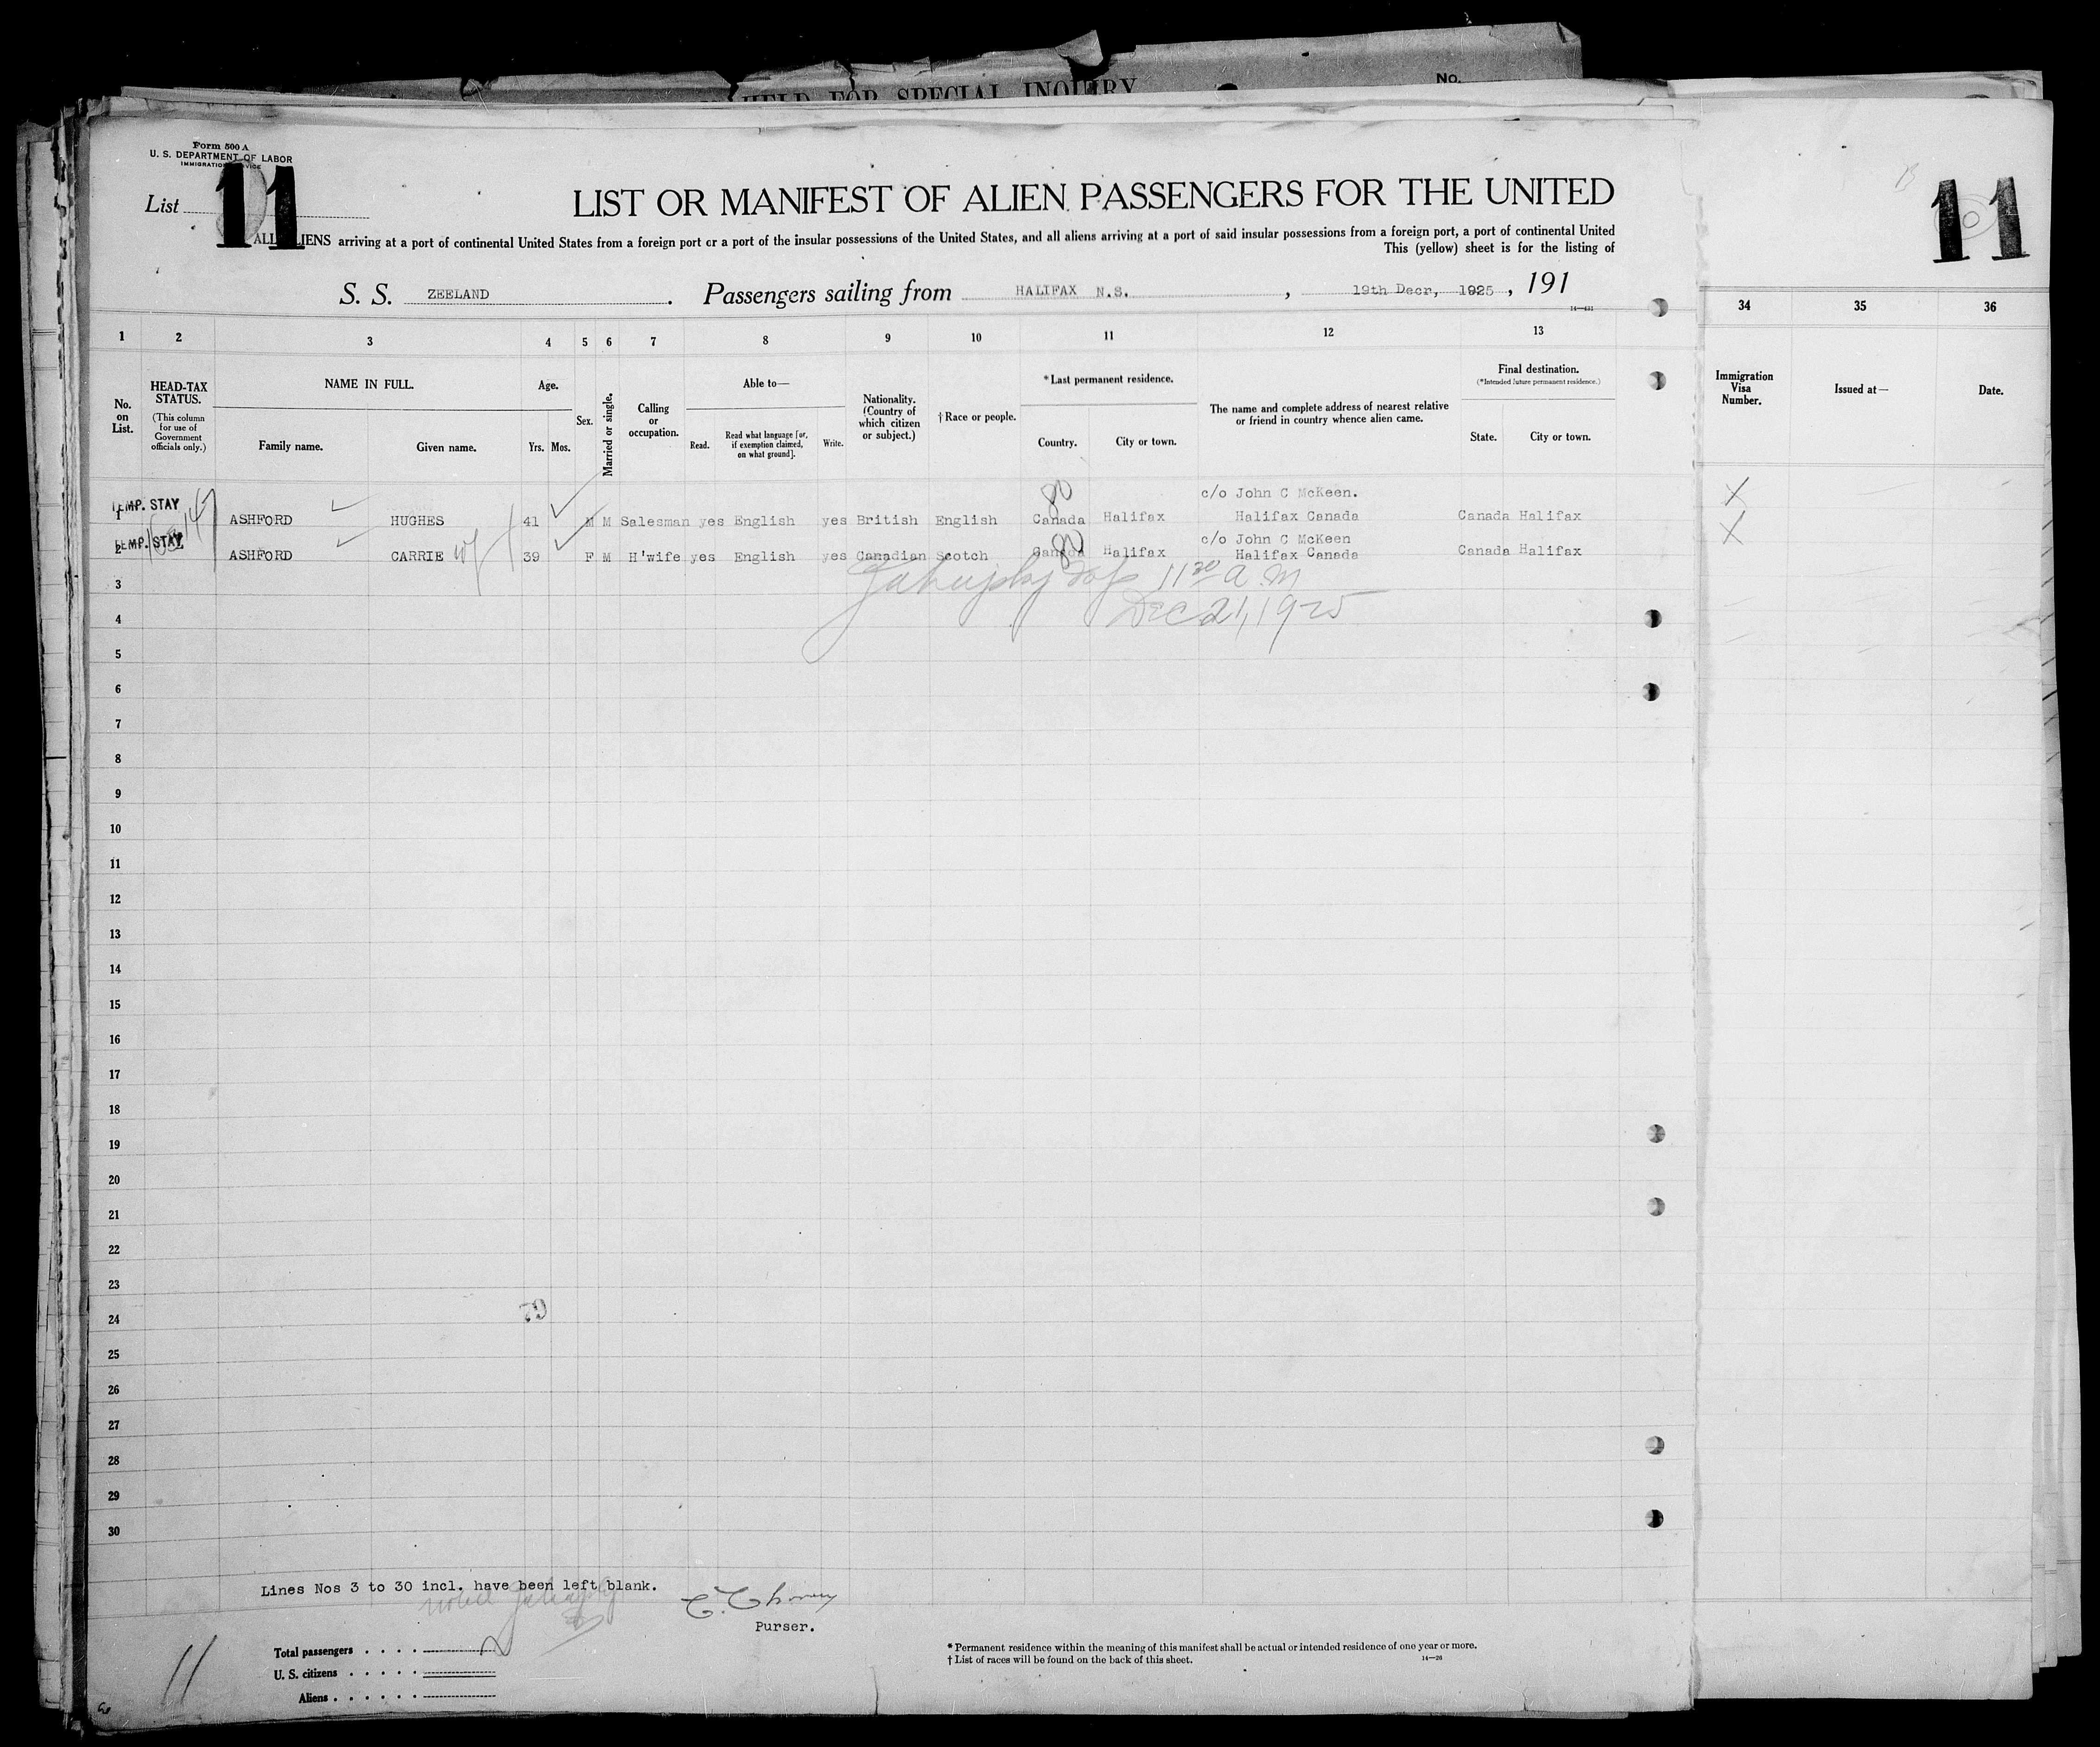 HELD FOR SPECIAL INQUIRY
No.
Form 500 A
U. S. DEPARTMENT OF LABOR
IMMIGRATION SERVICE
List 11
LIST OR MANIFEST OF ALIEN PASSENGERS FOR THE UNITED
ALL ALIENS arriving at a port of continental United States from a foreign port or a port of the insular possessions of the United States, and all aliens arriving at a port of said insular possessions from a foreign port, a port of continental United
This (yellow) sheet is for the listing of
11
S. S. ZEELAND . Passengers sailing from HALIFAX N.S. , 19th Decr, 1925 , 191
1 2 3 4 5 6 7 8 9 10 11 12 13
34 35 36
No. on List.
HEAD-TAX STATUS.
(This column for use of Government officials only.)
NAME IN FULL.
Family name. Given name.
Age.
Yrs. Mos.
Sex.
Married or single.
Calling or occupation.
Able to—
Read. Read what language [or, if exemption claimed, on what ground]. Write.
Nationality. (Country of which citizen or subject.)
† Race or people.
* Last permanent residence.
Country. City or town.
The name and complete address of nearest relative or friend in country whence alien came.
Final destination.
(*Intended future permanent residence.)
State. City or town.
Immigration Visa Number.
Issued at—
Date.
TEMP. STAY
c/o John C McKeen.
1 ASHFORD HUGHES 41 M M Salesman yes English yes British English Canada Halifax Halifax Canada Canada Halifax X
80
TEMP. STAY
c/o John C McKeen
2 ASHFORD CARRIE wf 39 F M H'wife yes English yes Canadian Scotch Canada Halifax Halifax Canada Canada Halifax X
80
3
11 30 a.m
4
Dec 21, 1925
5
6
7
8
9
10
11
12
13
14
15
16
17
18
19
20
21
22
23
24
25
26
27
28
29
30
Lines Nos 3 to 30 incl. have been left blank.
Purser.
Total passengers . . . .
U. S. citizens . . . . .
Aliens . . . . . .
11
* Permanent residence within the meaning of this manifest shall be actual or intended residence of one year or more.
† List of races will be found on the back of this sheet.
14—26